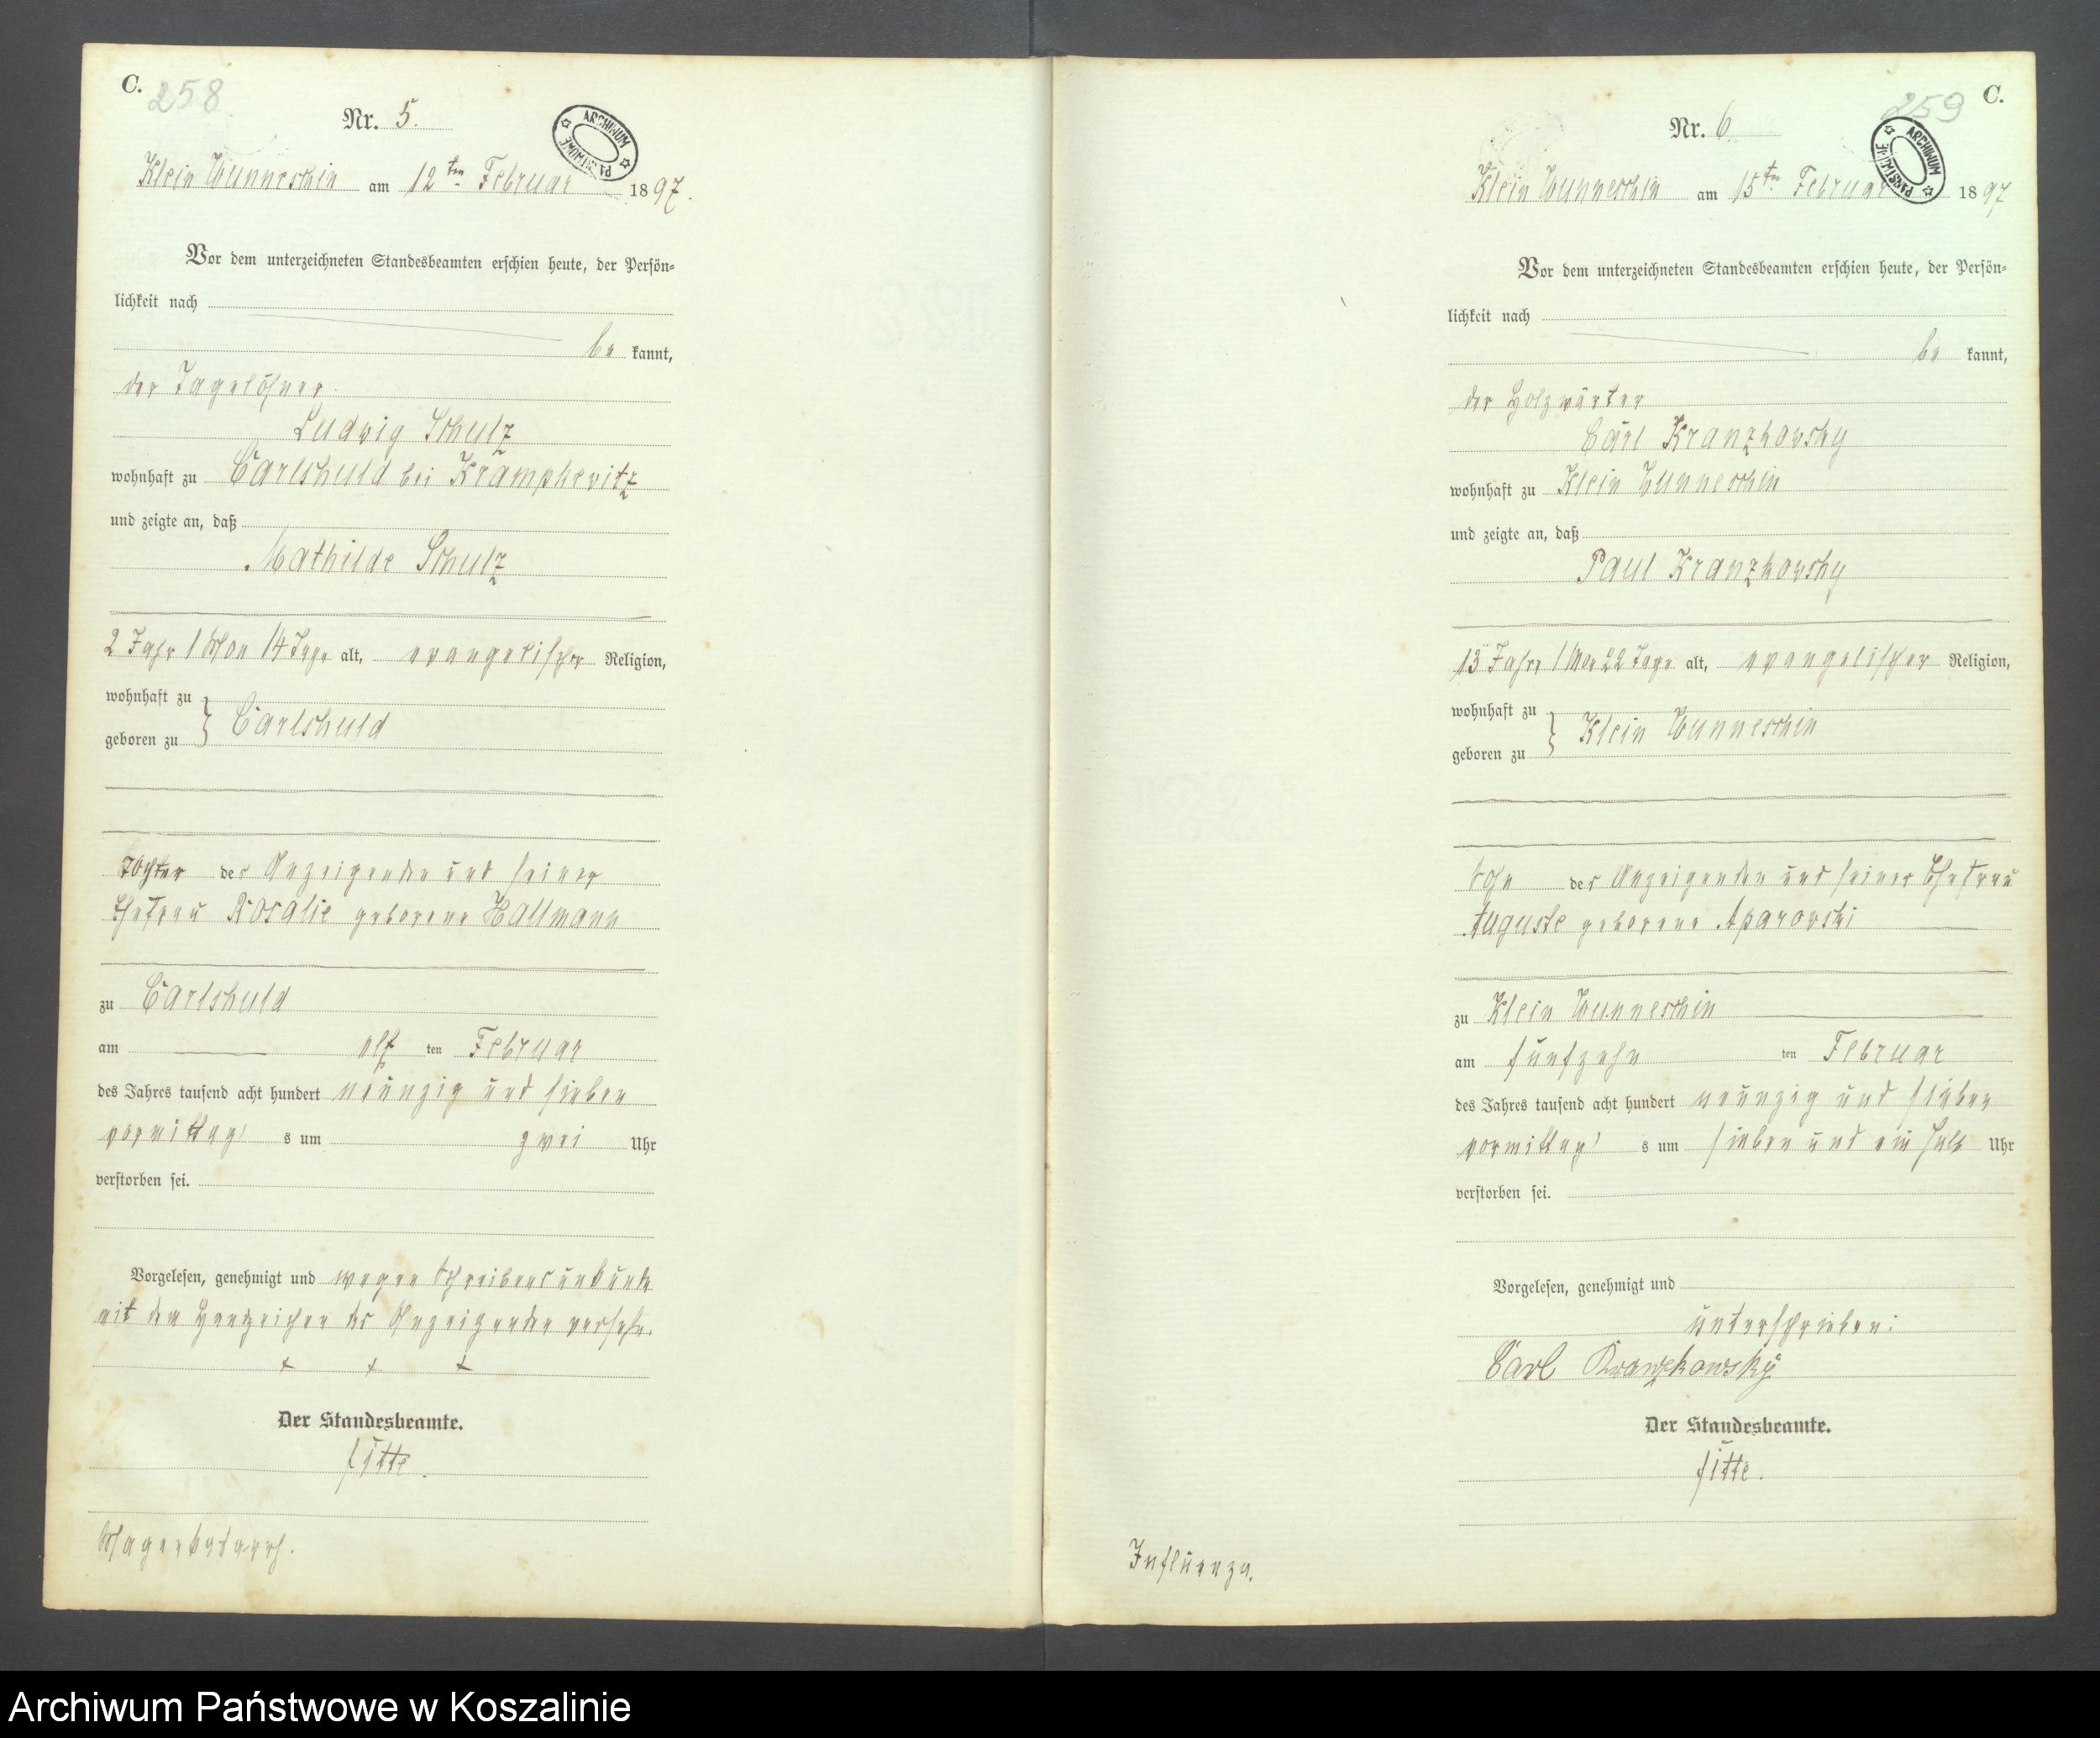 C.
258
Nr. 5.
ARCHIWUM PAŃSTWOWE
Klein Wunneschin am 12ten Februar 1897.
Vor dem unterzeichneten Standesbeamten erschien heute, der Persön-
lichkeit nach
be kannt,
der Tagelöhner
Ludwig Schulz
wohnhaft zu Carlshuld bei Krampkewitz
und zeigte an, daß
Mathilde Schulz
2 Jahr 1 Mon 14 Tage alt, evangelischer Religion,
wohnhaft zu
geboren zu } Carlshuld
Tochter des Anzeigenden und seiner
Ehefrau Rosalie geborene Hallmann
zu Carlshuld
am elf ten Februar
des Jahres tausend acht hundert neunzig und sieben
vormittag s um zwei Uhr
verstorben sei.
Vorgelesen, genehmigt und wegen Schreibensunkunde
mit dem Handzeichen des Anzeigenden versehn.
+ + +
Der Standesbeamte.
Magenkatarrh.
C.
259
Nr. 6
ARCHIWUM PAŃSTWOWE
Klein Wunneschin am 15ten Februar 1897
Vor dem unterzeichneten Standesbeamten erschien heute, der Persön-
lichkeit nach
be kannt,
der Holzwärter
Carl Kranzkowsky
wohnhaft zu Klein Wunneschin
und zeigte an, daß
Paul Kranzkowsky
13 Jahre 1 Mon 22 Tage alt, evangelischer Religion,
wohnhaft zu
geboren zu } Klein Wunneschin
Sohn des Anzeigenden und seiner Ehefrau
Auguste geborene
zu Klein Wunneschin
am fünfzehn ten Februar
des Jahres tausend acht hundert neunzig und sieben
vormittag s um sieben und ein halb Uhr
verstorben sei.
Vorgelesen, genehmigt und
unterschrieben:
Carl Kranzkowsky
Der Standesbeamte.
Influenza.
Archiwum Państwowe w Koszalinie